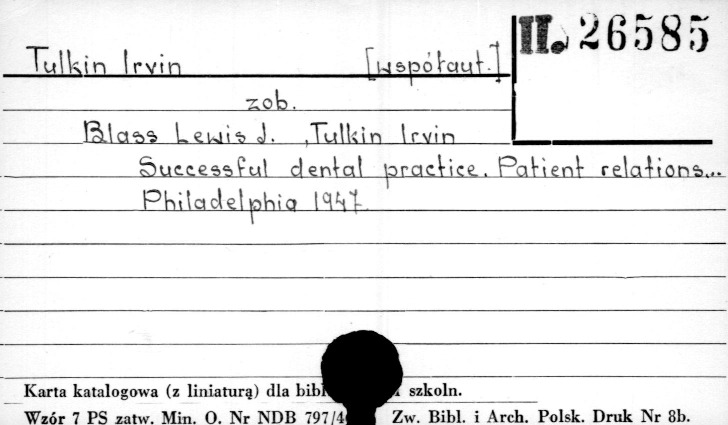 II. 26585
Tulkin Irvin [współaut.]
zob.
Blass Lewis J. , Tulkin Irvin
Successful dental practice. Patient relations...
Philadelphia 1947
Karta katalogowa (z liniaturą) dla szkoln.
Wzór 7 PS zatw. Min. O. Nr NDB Zw. Bibl. i Arch. Polsk. Druk Nr 8b.